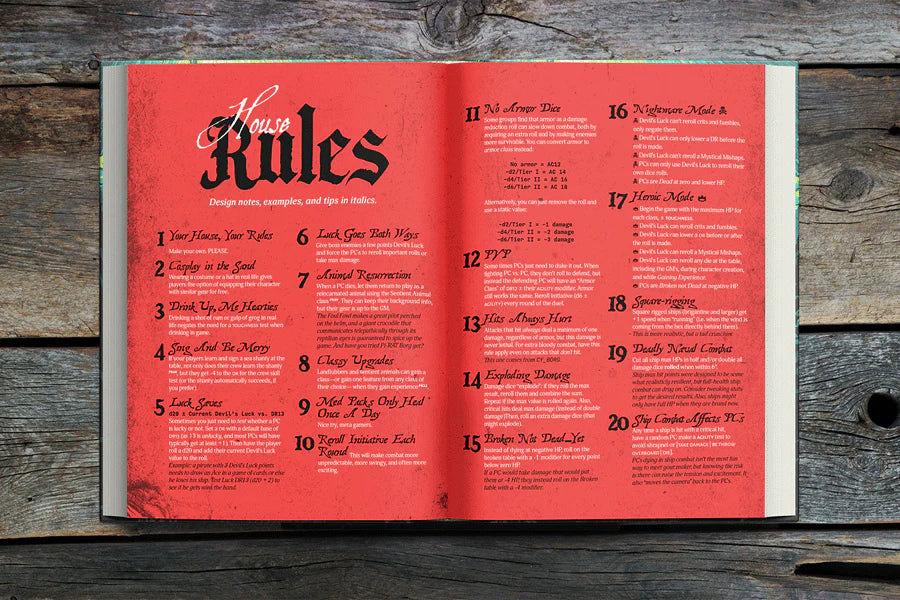 House
Rules
Design notes, examples, and tips in italics.
1 Your House, Your Rules
Make your own. PLEASE.
2 Cosplay in the Soul
Wearing a costume or a hat in real life gives
players the option of equipping their character
with similar gear for free.
3 Drink Up, Me Hearties
Drinking a shot of rum or gulp of grog in real
life negates the need for a TOUGHNESS test when
drinking in game.
4 Sing And Be Merry
If your players learn and sign a sea shanty at the
table, not only does their crew learn the shanty
they get -4 to the DR on the crew skill
test (or the shanty automatically succeeds, if
you prefer).
5 Luck Saves
d20 ± Current Devil's Luck vs. DR13
Sometimes you just need to test whether a PC
is lucky or not. Set 0 with a default base of
zero (so 1 is unlucky, and most PCs will have
typically get at least +1). Then have the player
roll a d20 and add their current Devil's Luck
value to the roll.
Example: a pirate with 2 Devil's Luck points
needs to draw an Ace in a game of cards or else
he loses his ship. Test Luck DR13 (d20 + 2) to
see if he gets wind the hand.
6 Luck Goes Both Ways
Give boss enemies a few points Devil's Luck
and force the PC's to reroll important rolls or
take max damage.
7 Animal Resurrection
When a PC dies, let them return to play as a
reincarnated animal using the Sentient Animal
class They can keep their background info,
but their gear is up to the GM.
The Foul Fowl makes a great pilot perched
on the helm, and a giant crocodile that
communicates telepathically through its
reptilian eyes is guaranteed to spice up the
game. And have you tried Pi RAT Borg yet?
8 Classy Upgrades
Landlubbers and sentient animals can gain a
class—or gain one feature from any class of
their choice— when they gain experience
9 Med Packs Only Heal
Once A Day
Nice try, meta gamers.
10 Reroll Initiative Each
Round This will make combat more
unpredictable, more swingy, and often more
exciting.
11 No Armor Dice
Some groups find that armor as a damage
reduction roll can slow down combat, both by
requiring an extra roll and by making enemies
more survivable. You can convert armor to
armor class instead:
No armor = AC12
-d2/Tier I = AC 14
-d4/Tier II = AC 16
-d6/Tier II = AC 18
Alternatively, you can just remove the roll and
use a static value:
-d2/Tier I = -1 damage
-d4/Tier II = -2 damage
-d6/Tier II = -3 damage
12 PVP
Some times PCs just need to duke it out. When
fighting PC vs. PC, they don't roll to defend, but
instead the defending PC will have an "Armor
Class" of DR12 ± their AGILITY modifier. Armor
still works the same. Reroll initiative (d6 ±
AGILITY) every round of the duel.
13 Hits Always Hurt
Attacks that hit always deal a minimum of one
damage, regardless of armor, but this damage is
never lethal. For extra bloody combat, have this
rule apply even to attacks that don't hit.
This one comes from CY_BORG.
14 Exploding Damage
Damage dice "explode": if they roll the max
result, reroll them and combine the sum.
Repeat if the max value is rolled again. Also,
critical hits deal max damage (instead of double
damage)Then, roll an extra damage dice (that
might explode).
15 Broken Not Dead...Yet
Instead of dying at negative HP, roll on the
broken table with a -1 modifier for every point
below zero HP.
If a PC would take damage that would put
them at -4 HP, they instead roll on the Broken
table with a -4 modifier.
16 Nightmare Mode
Devil's Luck can't reroll crits and fumbles,
only negate them.
Devil's Luck can only lower a DR before the
roll is made.
Devil's Luck can't reroll a Mystical Mishaps.
PCs can only use Devil's Luck to reroll their
own dice rolls.
PCs are Dead at zero and lower HP.
17 Heroic Mode
Begin the game with the maximum HP for
each class, ± TOUGHNESS.
Devil's Luck can reroll crits and fumbles.
Devil's Luck can lower a DR before or after
the roll is made.
Devil's Luck can reroll a Mystical Mishaps.
Devil's Luck can reroll any die at the table,
including the GM's, during character creation,
and while Gaining Experience.
PCs are Broken not Dead at negative HP.
18 Square-rigging
Square rigged ships (brigantine and larger) get
+1 speed when "running" (i.e. when the wind is
coming from the hex directly behind them).
This is more realistic, but a tad crunchier.
19 Deadly Naval Combat
Cut all ship max HPs in half and/or double all
damage dice rolled when within 6".
Ship max hit points were designed to be some
what realisticly resilient, but full-health ship
combat can drag on. Consider tweaking stats
to get the desired results. Also, ships might
only have full HP when they are brand new.
20 Ship Combat Affects PCs
Any time a ship is hit with a critical hit,
have a random PC make a AGILITY test to
avoid shrapnel or [TAKE DAMAGE | BE THROW
OVERBOARD | DIE].
PCs dying in ship combat isn't the most fun
way to meet your maker, but knowing the risk
is there can raise the tension and excitement. It
also "moves the camera" back to the PCs.